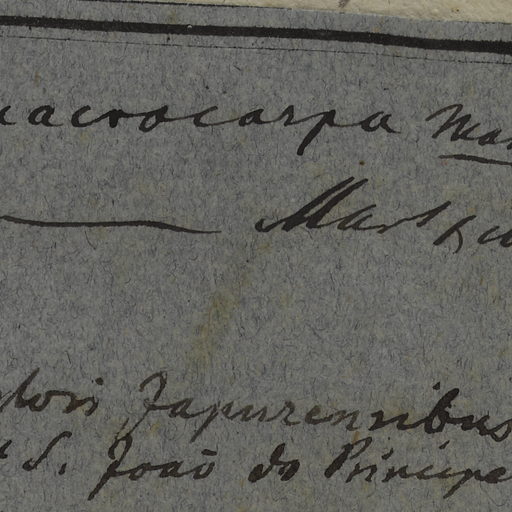 macrocarpa Mar
Mart
Japurensibus
S. João do Principe